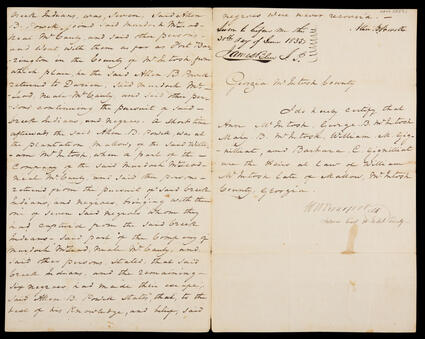 Creek Indians, was, Seven, Said Allen
B. Powell, joined said Murdoch McLeod,
Neal McCauly and said other persons
and went with them as far as Fort Bar
rington in the County of McIntosh from
which place, he the Said Allen B. Powell
returned to Darien, Said Murdoch McLeod,
Neal McCauly and Said other per
sons continuing the pursuit of Said
Creek Indians, and negroes. A Short time
afterwards the Said Allen B. Powell was at
the plantation Mallow, of the Said Willi
am McIntosh when a part of the
Company of the Said Murdoch McLeod
Neal McCauly, and Said other persons
returned from the pursuit of Said Creek
Indians, and negroes, bringing with them
one of Seven Said negroes whom they
had captured from the Said Creek
Indians. Said part of the Company of
Murdoch McLeod, Neal McCauly, and
Said other persons, Stated, that Said
Creek Indians, and the remaining
Six negroes had made their escape,
Said Allen B. Powell States, that, to the
best of his Knowledge, and belief, said
negroes were never recovered. —
Sworn to before me this
30th day of June 1835
James J.P.
Allen B Powell
Georgia McIntosh County
I do hereby certify that
Ann McIntosh George B. McIntosh
Mary B. McIntosh, William M. Gig
nilliat, and Barbara E. Gignilliat
are the Heirs at Law of William
McIntosh late of Mallow McIntosh
County, Georgia.